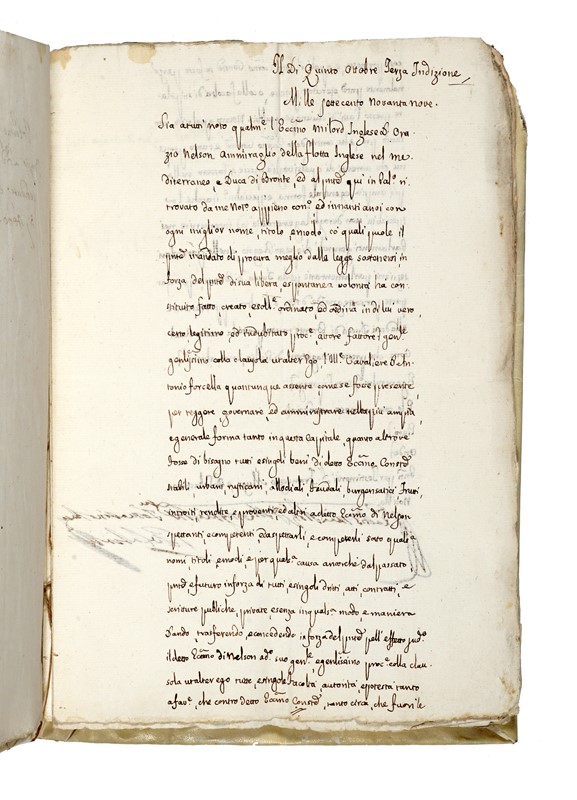 Il Dì Quinto Ottobre Terza Indizione
Mille settecento Novanta nove.
Sia a tutti noto qualm.e l'Ecc.mo Milord Inglese D. Ora-
zio Nelson Ammiraglio della flotta Inglese nel me-
diterraneo e Duca di Bronte, ed al pnte qui in Pal.o ri-
trovato da me Not.o appieno con.o ed innanti a noi con
ogni miglior nome, titolo, e modo, co' quali puole il
pnte mandato di procura meglio dalla legge sostenersi, in
forza del pnte di sua libera, e spontanea volontà ha con-
stituito fatto, creato, e soll.e ordinato, ed ordina in di lui vero,
certo, legitimo, ed indubitato proc.e, attore fattore, gen.le
gen.lissimo colla clausola ut alter Ego, l'Ill.e Cavaliere D. An-
tonio forcella quantunque assente come se fosse presente
per reggere, governare, ed amministrare nella più ampia,
e generale forma tanto in questa Capitale, quanto altrove
fosse di bisogno tutti e singoli beni di detto Ecc.mo Const.e
stabili, urbani, rusticani, allodiali feudali burgensatici, frutti,
introiti rendite, e proventi, ed altri a detto Ecc.mo di Nelson
spettanti, e competenti, ed aspettarli, e competerli sotto quals.a
nomi, titoli, e modi e per quals.a causa ancorche dal passato,
pnte e futuro in forza di tutti, e singoli dritti, atti contratti, e
scritture publiche, private, e senza in quals.a modo, e maniera
Dando, trasferendo, e concedendo in forza del pnte pell'effetto sud.o
il detto Ecc.mo di Nelson ad.o suo gen.le, e gen.lissimo proc.e colla clau-
sola ut alter ego tutte, e singole facoltà autorità, e potestà tanto
a fav.e, che contro detto Ecc.mo Const.e, tanto circa, che fuori le